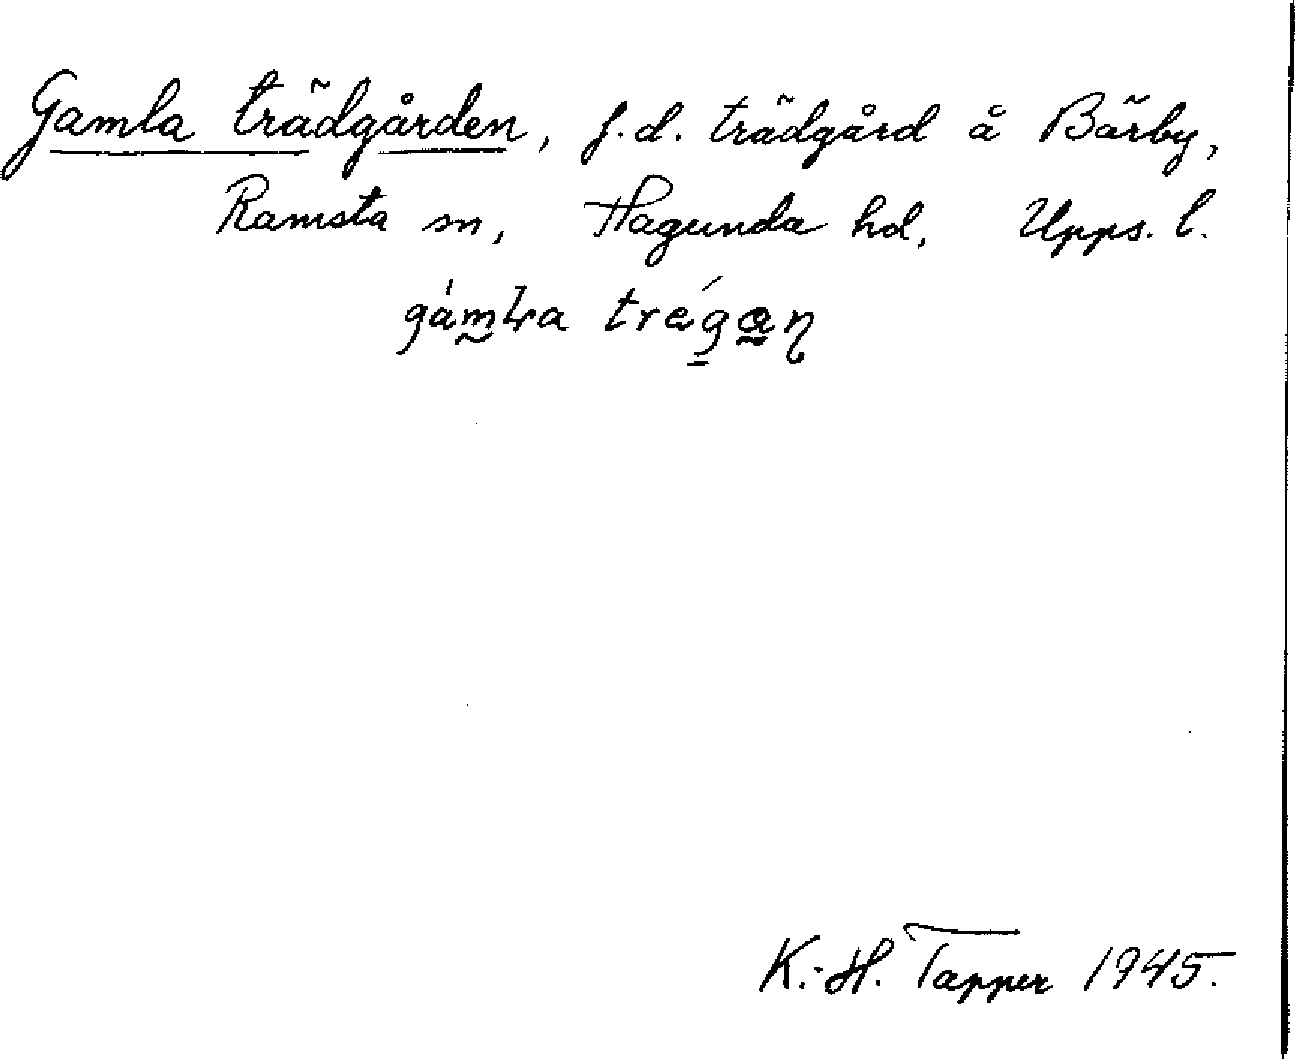 Gamla trädgården, f.d. trädgård å Bärby,
Ramsta sn, Hagunda hd, Upps. l.
gamla
K.-H. Tapper 1945.